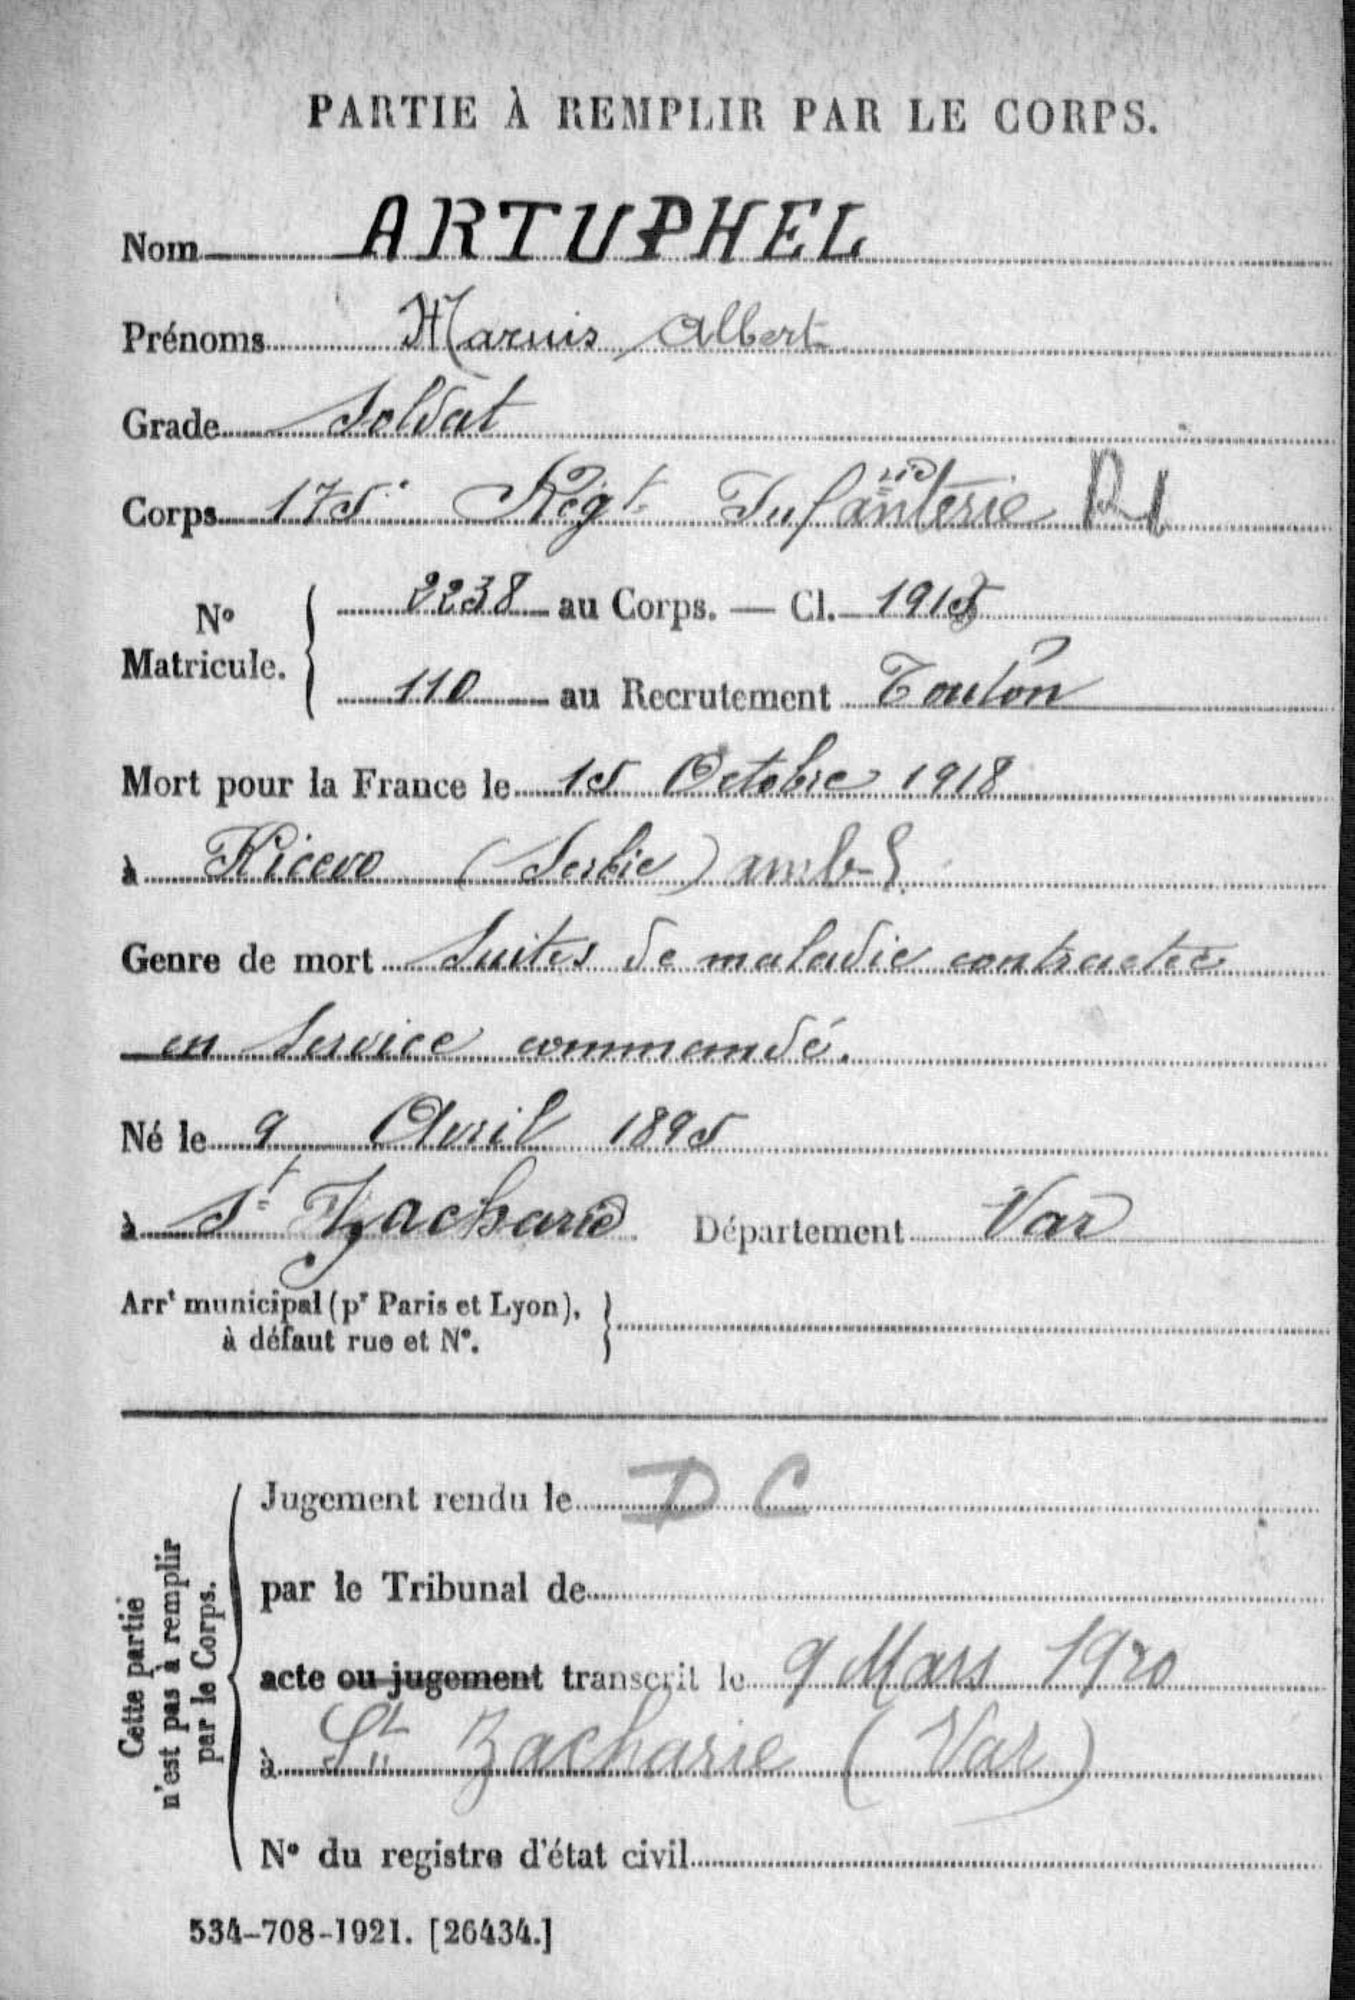 PARTIE À REMPLIR PAR LE CORPS.
Nom ARTUPHEL
Prénoms Marius Albert
Grade Soldat
Corps 175e Régt Infanterie RI
No Matricule. 2238 au Corps. — Cl. 1915
110 au Recrutement Toulon
Mort pour la France le 15 Octobre 1918
à Kicevo (Serbie)
Genre de mort Suites de maladie contractée
en Service commandé.
Né le 9 Avril 1895
à St Zacharie Département Var
Arrt municipal (pr Paris et Lyon),
à défaut rue et No.
Cette partie
n'est pas à remplir
par le Corps.
Jugement rendu le D C
par le Tribunal de
acte ou jugement transcrit le 9 Mars 1920
à St Zacharie (Var)
No du registre d'état civil
534-708-1921. [26434.]